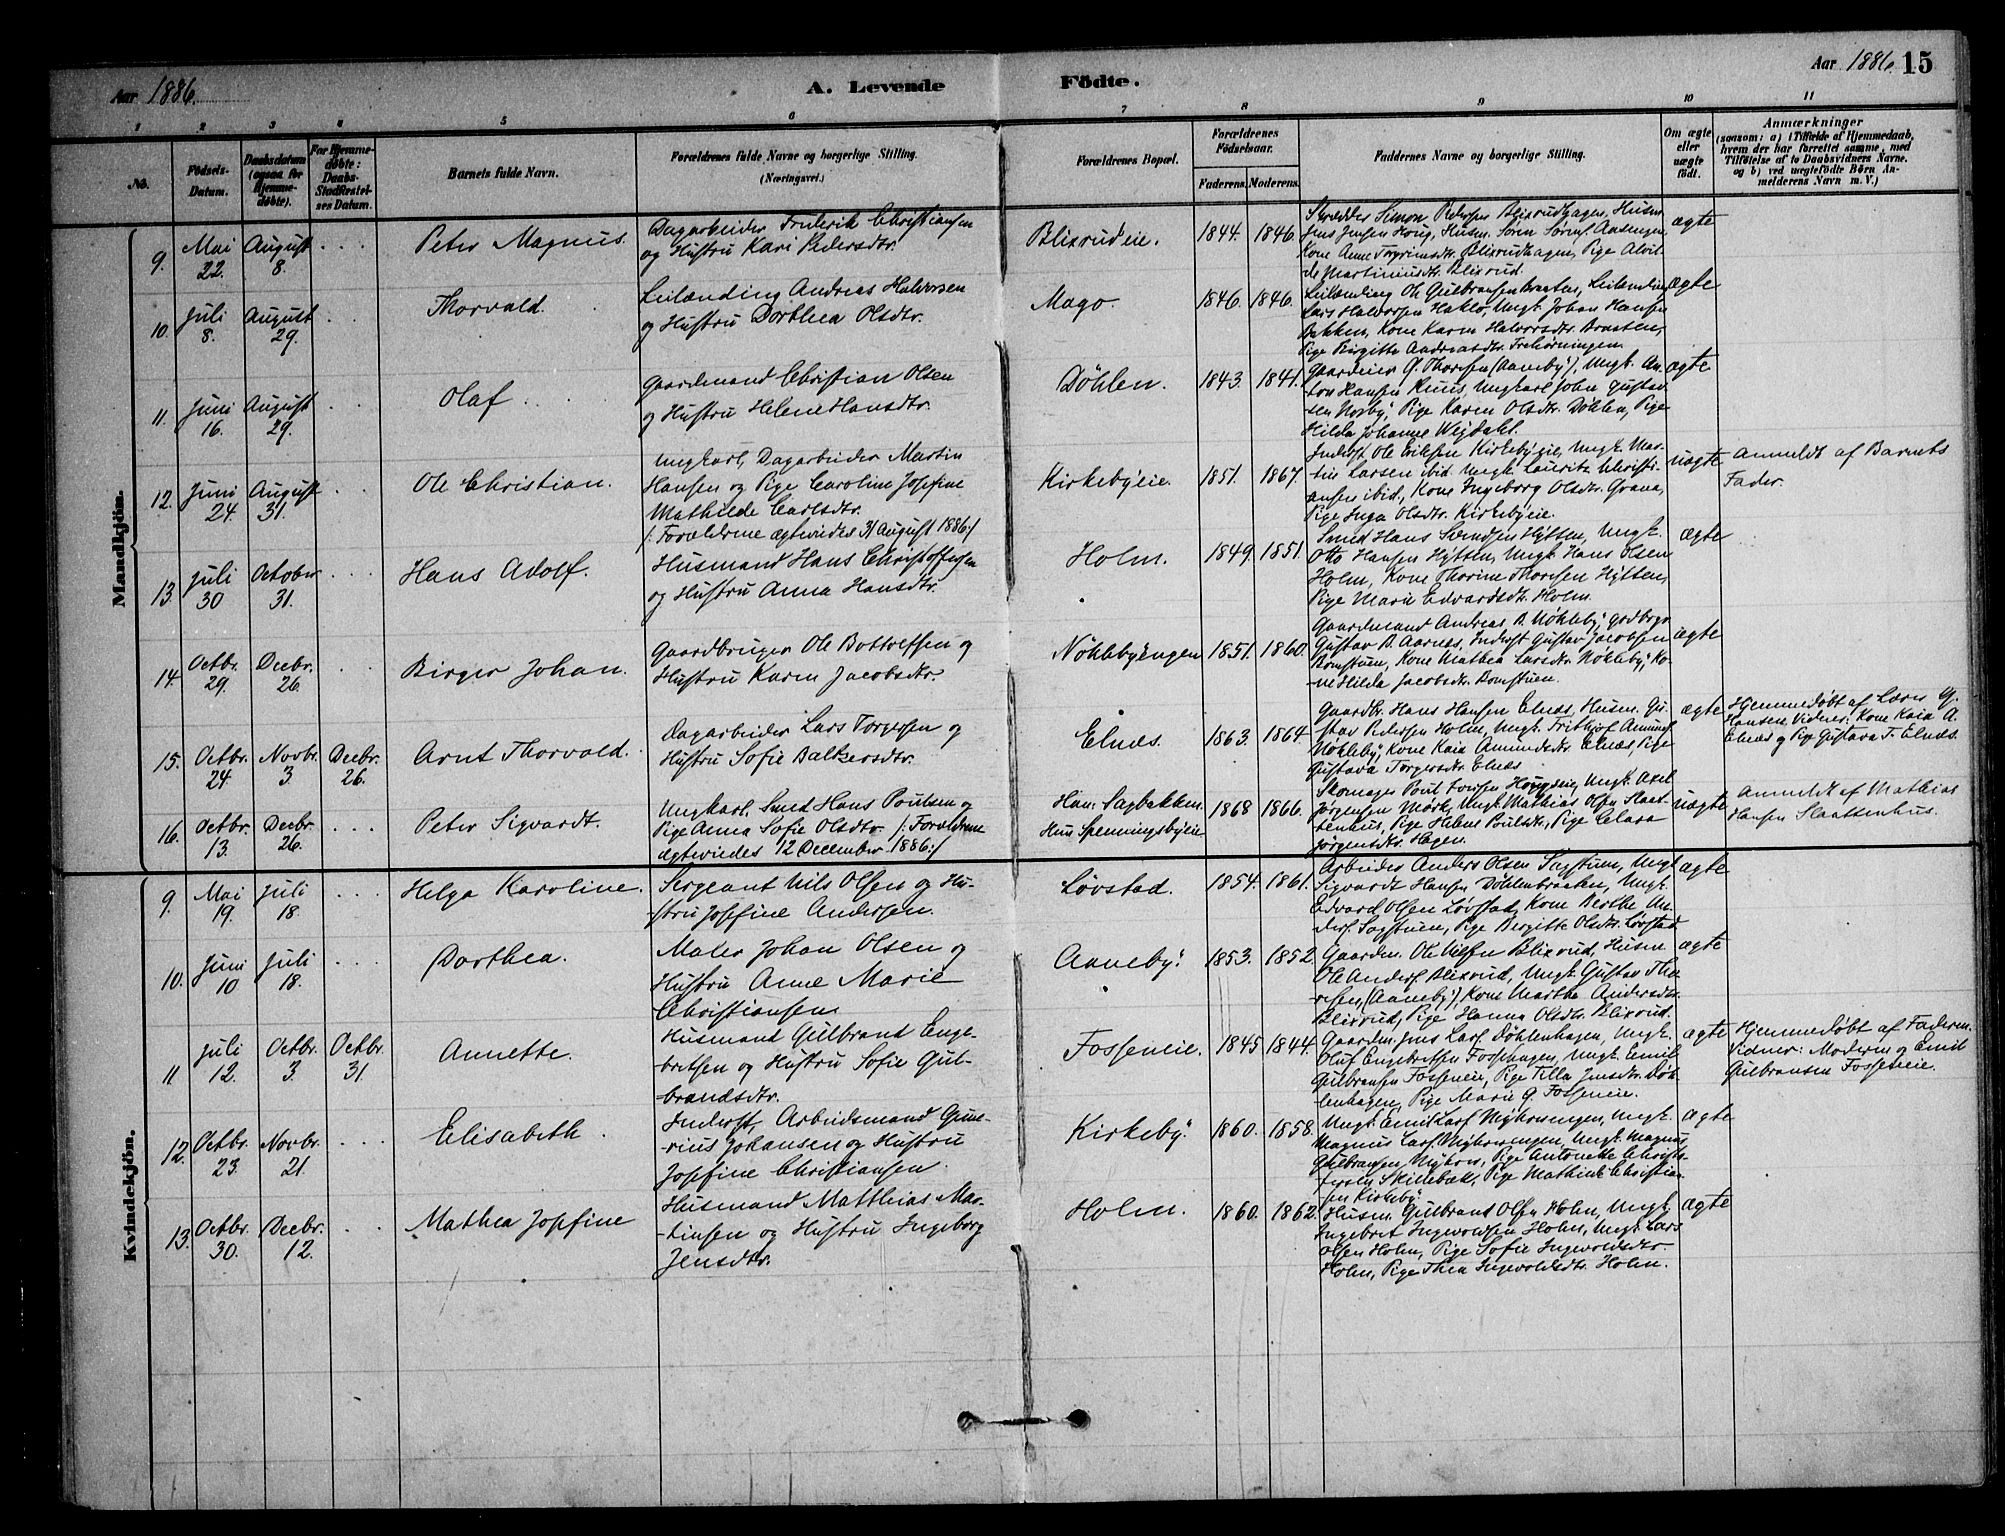 Aar 1886.
A. Levende Födte.
Aar 1886. 15
1 2 3 4 5 6 7 8 9 10 11
No.
Födsels-Datum.
Daabsdatum (ogsaa for Hjemme-døbte).
For Hjemme-døbte: Daabs-Stadfæstel-ses Datum.
Barnets fulde Navn.
Forældrenes fulde Navne og borgerlige Stilling.
(Næringsvei.)
Forældrenes Bopæl.
Forældrenes Födselsaar.
Faderens. Moderens.
Faddernes Navne og borgerlige Stilling.
Om ægte eller uægte födt.
Anmærkninger
(saasom: a) i Tilfælde af Hjemmedaab,
hvem der har forrettet samme, med
Tilföielse af to Daabsvidners Navne.
og b) ved uægtefödte Börn An-
melderens Navn m. V.)
Mandkjön.
9. Mai 22. August 8. Peter Magnus.
Dagarbeider Frederik Christiansen
og Hustru Kari Pedersdtr.
Blixrudeie. 1844. 1846.
Skrædder Simon Pedersen Blixrudhagen, Husm.
Jens Jensen Houg, Husm. Søren Sørens.
Kone Anne Blixrudhagen, Pige Alvil-
de Martiniusdtr. Blixrud.
ægte
10. Juli 8. August 29. Thorvald.
Leilænding Andreas Halvorsen
og Hustru Dorthea Olsdtr.
Mago. 1846. 1846.
Leilænding Ole Gulbransen Braaten, Leilænding
Lars Halvorsen Haklo, Ungk. Johan Hansen
Bakken, Kone Karen Halvorsdtr. Braaten,
Pige Birgitte Andreasdtr. Trehørningen.
ægte
11. Juni 16. August 29. Olaf
Gaardmand Christian Olsen
og Hustru Helene Hansdtr.
Döhlen. 1843. 1841.
Gaardeier G. Thoresen (Aaneby), Ungk. An-
ton Hansen Ruus, Ungkarl John Gustav-
sen Norby, Pige Karen Olsdtr. Döhlen, Pige
Hilda Johanne Wejdahl.
ægte
12. Juni 24. August 31. Ole Christian.
Ungkarl, Dagarbeider Martin
Hansen og Pige Caroline Josefine
Mathilde Carlsdtr.
/: Forældrene ægteviedes 31 August 1886:/
Kirkebyeie. 1851. 1867.
Inderst Ole Eriksen Kirkebyeie, Ungk. Mar-
tin Larsen ibid. Ungk. Lauritz Christi-
ansen ibid., Kone Ingeborg Olsdtr. Grava,
Pige Inga Olsdtr. Kirkebyeie.
uægte
Anmeldt af Barnets
Fader.
13. Juli 30 October 31. Hans Adolf.
Husmand Hans Christoffersen
og Hustru Anna Hansdtr.
Holm. 1849. 1851.
Smed Hans Hytten, Ungk.
Otto Hansen Hytten, Ungk. Hans Olsen
Holm, Kone Thorine Thoresen Hytten,
Pige Marie Edvardsdtr. Holm.
ægte
14. Octbr. 29. Decbr. 26. Birger Johan.
Gaardbruger Ole Bottolfsen og
Hustru Karen Jacobsdtr.
Nöklebyengen 1851. 1860.
Gaardmand Andreas B. Nökleby, grdbrgr.
Gustav B. Aarnes, Inderst Gustav Jacobsen
Romstuen, Kone Mathea Larsdtr. Nökleby, Ko-
ne Hilda Jacobsdtr. Romstuen.
ægte
15. Octbr. 24. Novbr. 3. Decbr. 26. Arnt Thorvald.
Dagarbeider Lars Torgersen og
Hustru Sofie Baltzersdtr.
Elnæs. 1863. 1864.
Gaardbr. Hans Hansen Elnæs, Husm. Gu-
stav Pedersen Holm, Ungk. Frithjof Amunds.
Nökleby, Kone Kaia Amundsdtr. Elnæs, Pige
Gustava Torgersdtr. Elnæs
ægte
Hjemmedøbt af Lærer G.
Hansen. Vidner: Kone Kaia A.
Elnæs og Pige Gustava T. Elnæs.
16. Octbr. 13. Decbr. 26. Peter Sigvardt.
Ungkarl, Smed Hans Poulsen og
Pige Anna Sofie Olsdtr. /: Forældrene
ægteviedes 12 December 1886:/
Han: Sagbakken.
Hun: Spenningsbyeie
1868 1866.
Skomager Poul Ungk. Axel
Jørgensen Mørk, Ungk. Mathias Olsen Slaat-
tenhus, Pige Helene Poulsdtr., Pige Clara
Jørgensdtr. Hagen.
uægte
Anmeldt af Mathias
Hansen Slaattenhus.
Kvindekjön.
9. Mai 19. Juli 18. Helga Karoline.
Sergeant Nils Olsen og Hu-
stru Josefine Andersen.
Løvstad. 1854. 1861.
Arbeider Anders Olsen Sagstuen, Ungk.
Sigvardt Hansen Döhlenbraaten, Ungk.
Edvard Olsen Løvstad, Kone Berthe An-
ders. Sagstuen, Pige Birgitte Olsdtr. Løvstad
ægte
10. Juni 10 Juli 18. Dorthea.
Maler Johan Olsen og
Hustru Anne Marie
Christiansen
Aaneby. 1853. 1852.
Gaardm. Ole Nilsen Blixrud, Husm.
Ole Anders. Blixrud, Ungk. Gustav Tho-
resen, (Aaneby), Kone Marthe Andersdtr.
Blixrud, Pige Hanna Olsdtr. Blixrud.
ægte
11 Juli 12. Octbr. 3. Octbr. 31. Annette.
Husmand Gulbrand Enge-
bretsen og Hustru Sofie Gul-
brandsdtr.
Fosseneie. 1845 1844.
Gaardm. Jens Lars. Döhlenhagen, Ungk.
Oluf Engebretsen Fossehagen, Ungk. Emil
Gulbransen Fosseneie, Pige Tilla Jensdtr. Döh-
lenhagen, Pige Marie G. Fosseneie.
ægte
Hjemmedøbt af Faderen.
Vidner: Moderen og Emil
Gulbransen Fosseneie.
12. Octbr. 23 Novbr. 21. Elisabeth.
Inderst, Arbeidsmand Gune-
rius Johansen og Hustru
Josefine Christiansen.
Kirkeby. 1860. 1858.
Ungk. Emil Lars. Myhrsengen, Ungk.
Magnus Lars. Myhrsengen, Ungk. Magnus
Gulbransen, Myhrer, Pige Antonette Christof-
fersen, Skillebæk, Pige Mathilde Christian-
sen Kirkeby.
ægte
13. Octbr. 30. Decbr. 12. Mathea Josefine
Husmand Matthias Mar-
tinsen og Hustru Ingeborg
Jensdtr.
Holm. 1860. 1862.
Husm. Gulbrand Olsen Holm, Ungk.
Ingebret Ingevoldsen Holm, Ungk. Lars
Olsen Holm, Pige Sofie Ingevoldsdtr.
Holm, Pige Thea Ingevoldsdtr. Holm.
ægte